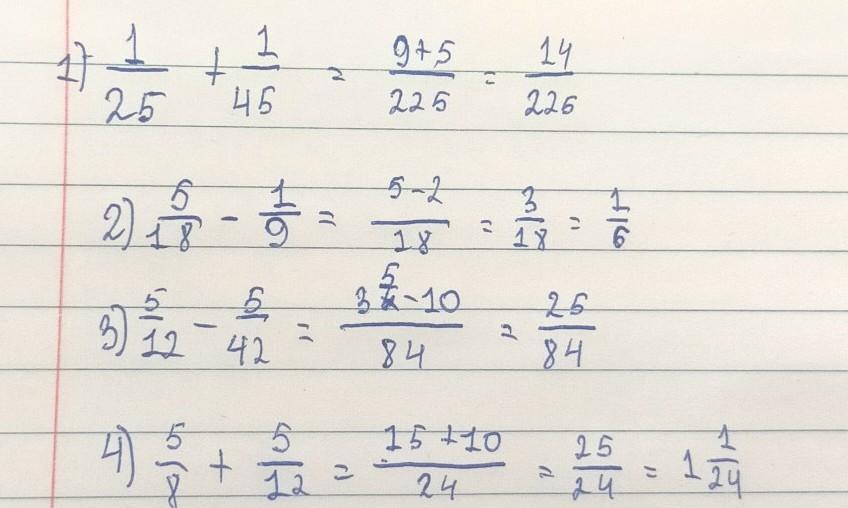 1) 1/25 + 1/45 = 9+5/225 = 14/226
2) 5/18 - 1/9 = 5-2/18 = 3/18 = 1/6
3) 5/12 - 5/42 = 35-10/84 = 25/84
4) 5/8 + 5/12 = 15+10/24 = 25/24 = 1 1/24